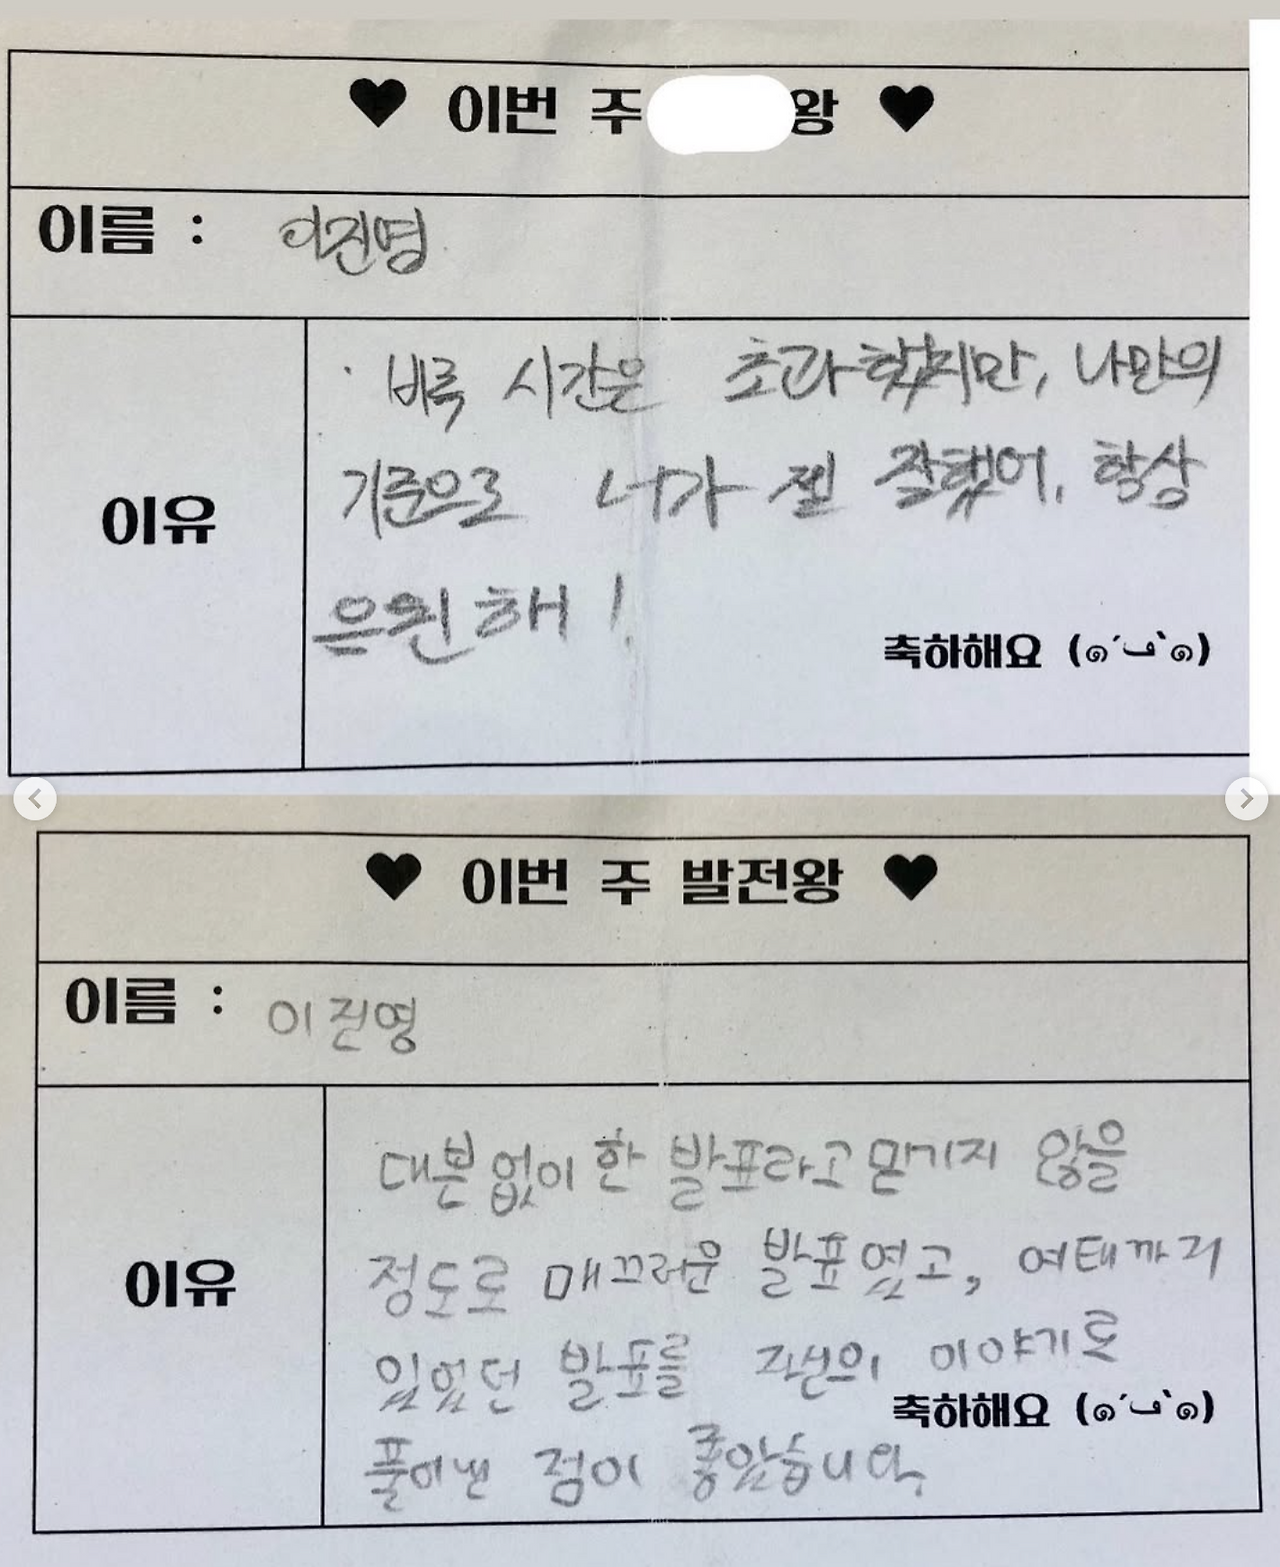 ♥ 이번 주 왕 ♥
이름 : 이진영
이유
· 비록 시간은 초과했지만, 나만의
기준으로 너가 젤 잘했어. 항상
응원해!
축하해요 (๑´ڡ`๑)
♥ 이번 주 발전왕 ♥
이름 : 이진영
이유
대본없이 한 발표라고 믿기지 않을
정도로 매끄러운 발표였고, 여태까지
있었던 발표를 자신의 이야기로
풀어낸 점이 좋았습니다.
축하해요 (๑´ڡ`๑)